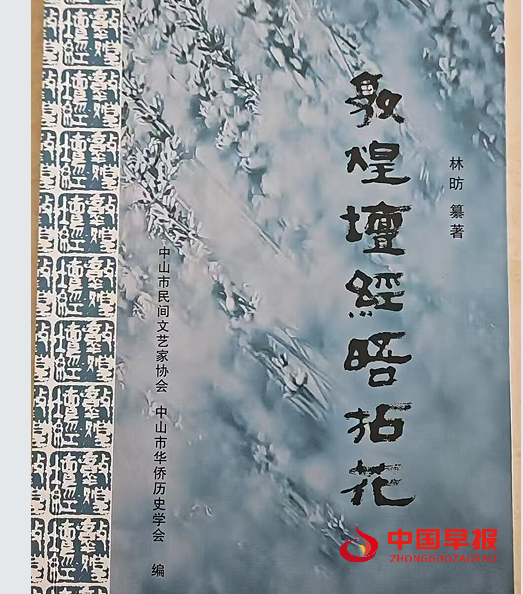 林昉 纂著
敦煌壇經晤拈花
中山市民间文艺家协会 中山市华侨历史学会 编
中国早报